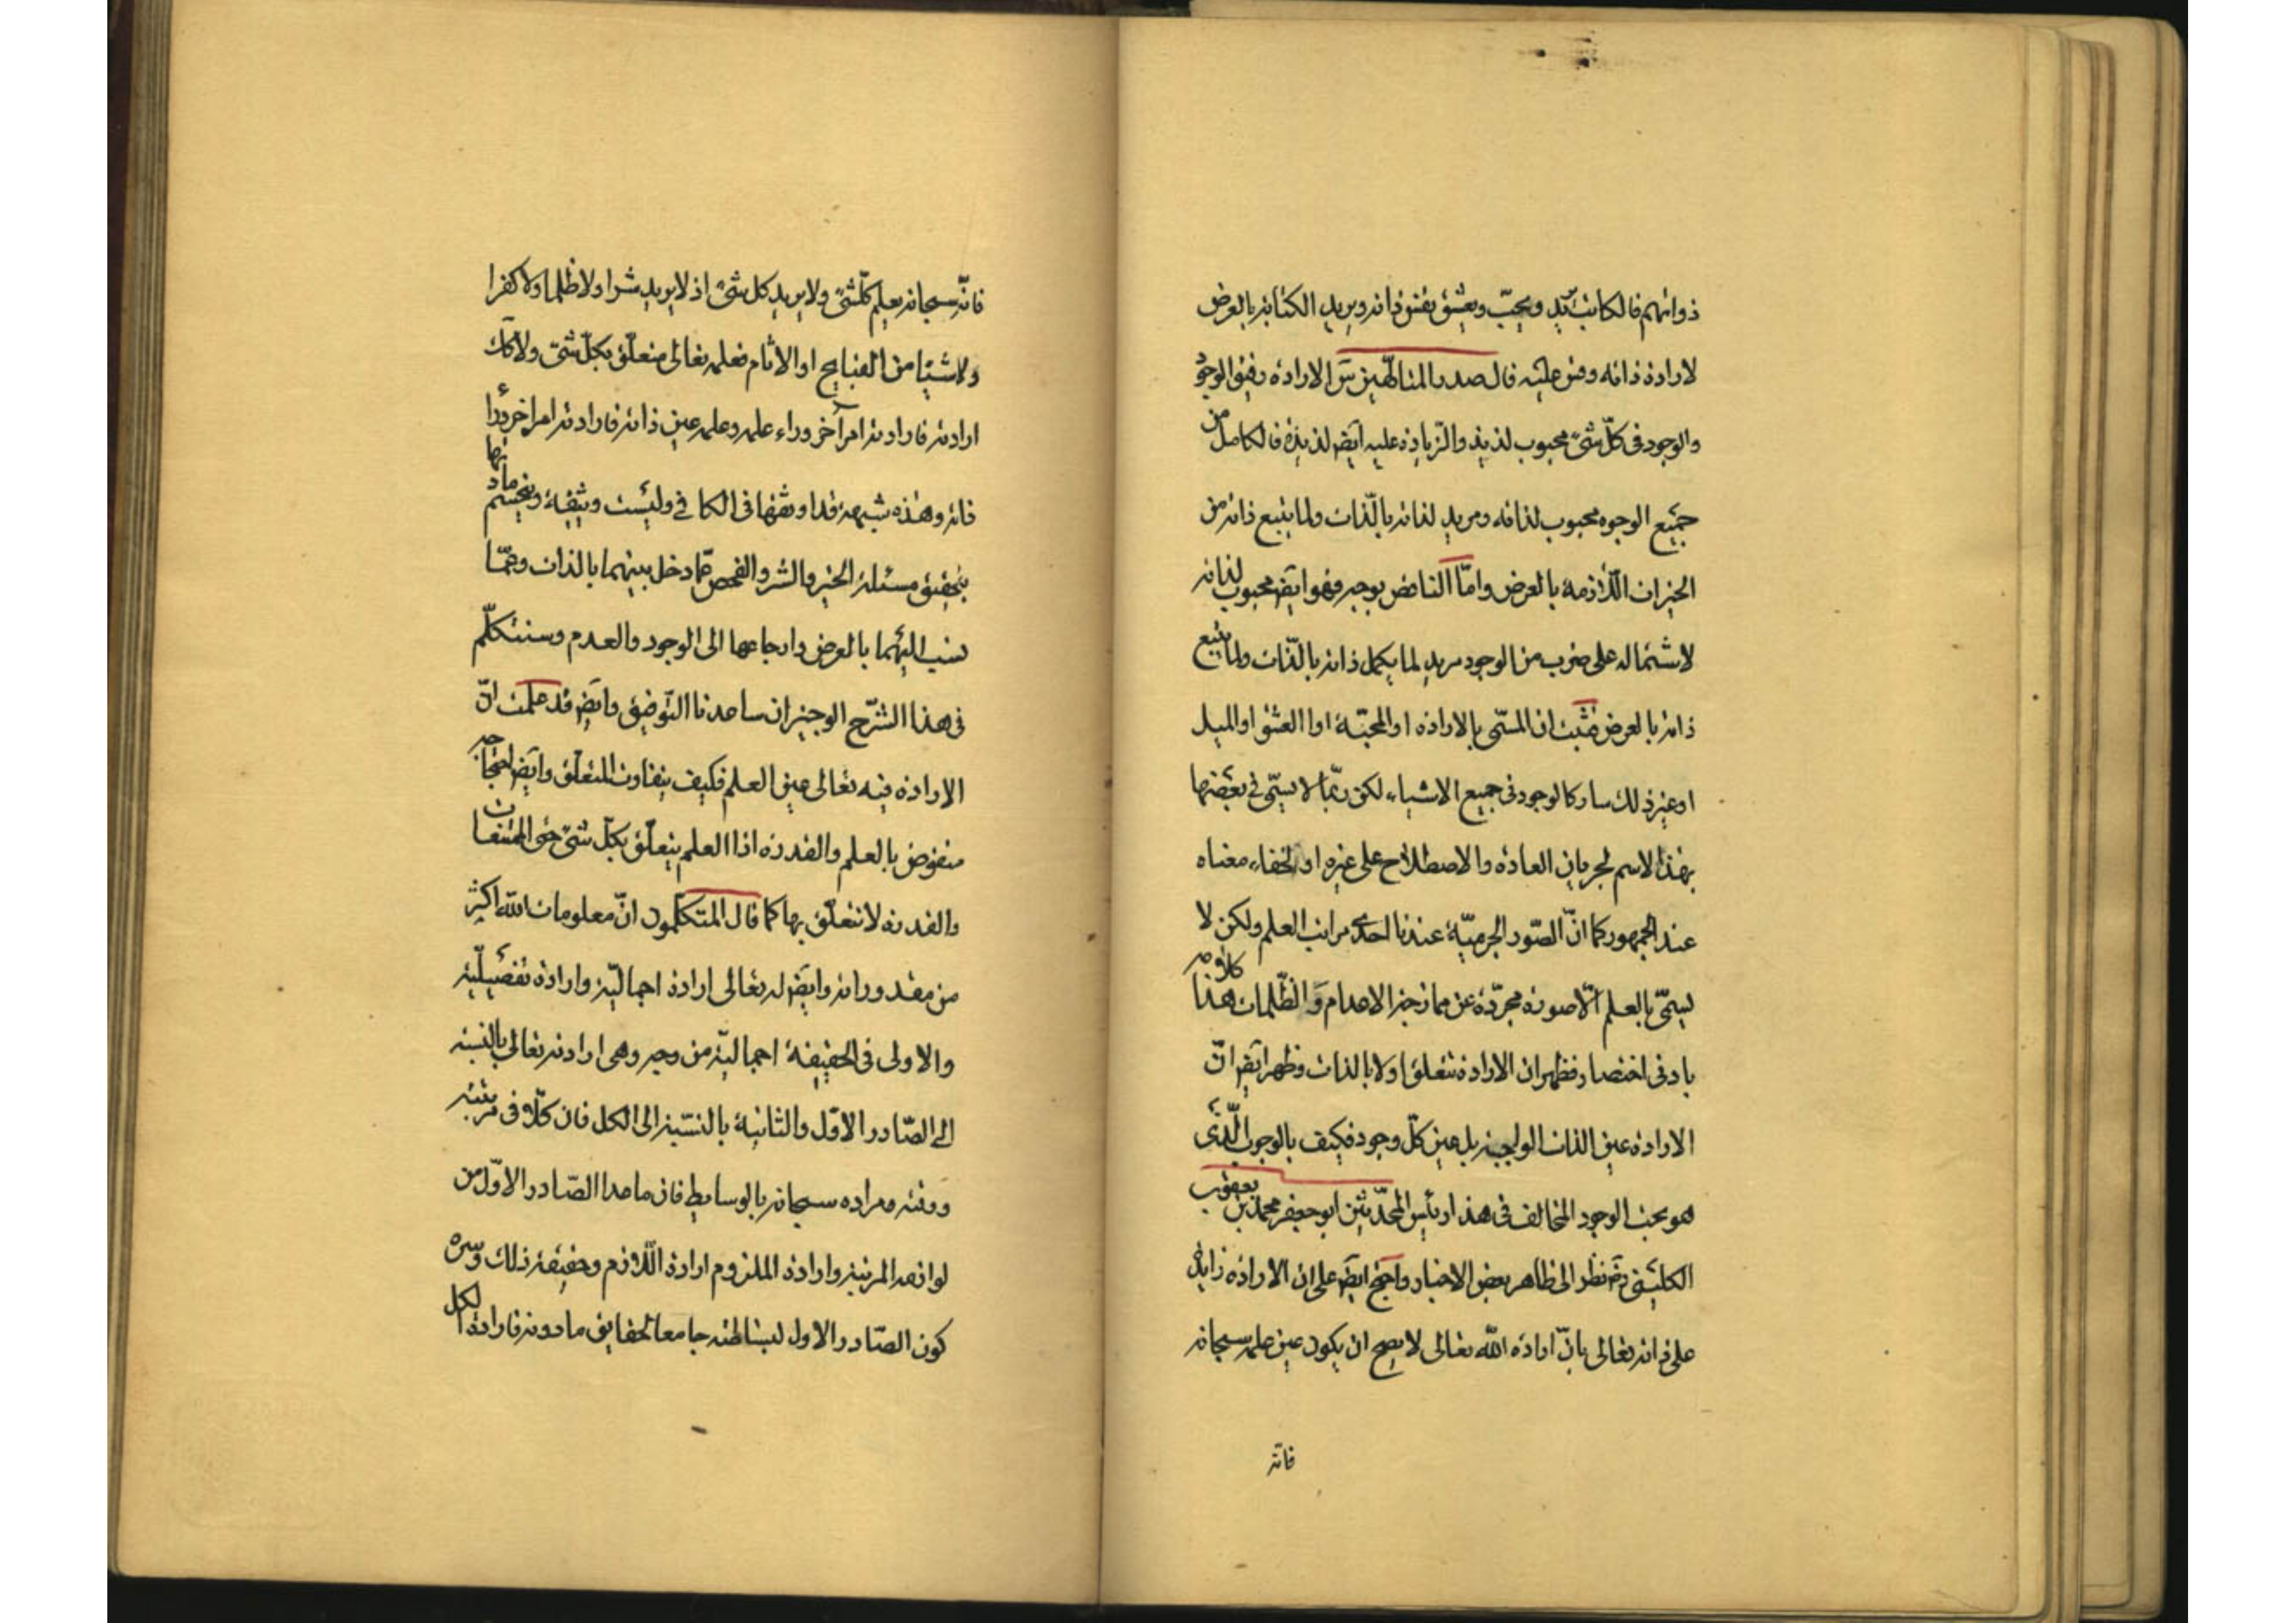 ذواتهم فالكاتب يريد ويحبّ ويعشق نفس ذاته ويريد الكتابة بالعرض
لارادة ذاته وقس عليه قال صدر المتالّهين سَ الارادة رفيق الوجود
والوجود فى كلّ شىء محبوب لذيذ والزّيادة عليه ايَضا لذيذة فالكامل من
جميع الوجوه محبوب لذاته ومريد لذاته بالّذات ولما يتبع ذاته من
الخيرات اللّازمة بالعرض وامّا الناقص بوجه فهو ايَض محبوب لذاته
لاشتماله على ضرب من الوجود مريد لما يكمل ذاته بالّذات ولما يتبع
ذاته بالعرض فثبت ان المسمّى بالارادة او المحبّة او العشق او الميل
او غير ذلك سار كالوجود فى جميع الاشياء لكن ربّما لا يسمّى فى بعضها
بهذا الاسم لجريان العادة والاصطلاح على غيره او لخفاء معناه
عند الجمهور كما انّ الصّور الجرميّة عندنا احدى مراتب العلم ولكن لا
يسمّى بالعلم الّا صورة مجرّدة عن ممازجة الاعدام وَالظّلمات هذا كلامه
بادنى اختصار فظهر ان الارادة تتعلق اولا بالذات وظهر ايَض انّ
الارادة عين الذات الواجبة بل عين كلّ وجود فكيف بالوجوب الّذى
هو بحت الوجود المخالف فى هذا رئيس المحّدثين ابو جعفر محمد بن يعقوب
الكلينى ره نظر الى ظاهر بعض الاخبار واحتج ايضَ على ان الارادة زايدة
على ذاته تعالى بانّ ارادة اللّه تعالى لا يصح ان يكون عين علمه سبحانه
فانّه
فانّه سبحانه يعلم كلّ شىء ولا يريد كل شىء اذ لا يريد شرا ولا ظلما ولا كفرا
ولا شيئا من القبايح او الاثام فعلمه تعالى متعلّق بكلّ شىء ولا كك
ارادته فارادته امر آخر وراء علمه وعلمه عين ذاته فارادته امر اخر وراء
ذاته وهذه شبهة قد اوثقها فى الكافى وليست وثيقة وينحسم مادتها
بتحقيق مسئلة الخير والشر والفحص عمّا دخل بينهما بالذات وعمّا
نسب اليهما بالعرض وارجاعها الى الوجود والعدم وسنتكلّم
فى هذا الشرّح الوجيز ان ساعدنا التّوفيق وايَض قد علمت انّ
الارادة فيه تعالى عين العلم فكيف يتفاوت المتعلّق وايَض احتجاجه
منقوض بالعلم والقدرة اذ العلم يتعلّق بكلّ شىء حتى الممتنعات
والقدرة لا تتعلّق بها كما قال المتكلمون انّ معلومات اللّه اكثر
من مقدوراته وايَض له تعالى ارادة اجماليّة وارادة تفصيليّة
والاولى فى الحقيقة اجمالية من وجه وهى ارادته تعالى بالنسبة
الى الصّادر الاوّل والثانية بالنسّبة الى الكل فان كلّا فى مرتبته
ووقته مراده سبحانه بالوسايط فان ما عدا الصّادر الاوّل من
لوازمه المرتبة وارادة الملزوم ارادة اللّازم وحقيقة ذلك وسره
كون الصّادر الاول لبساطته جامعا لحقايق ما دونه فارادة الكل